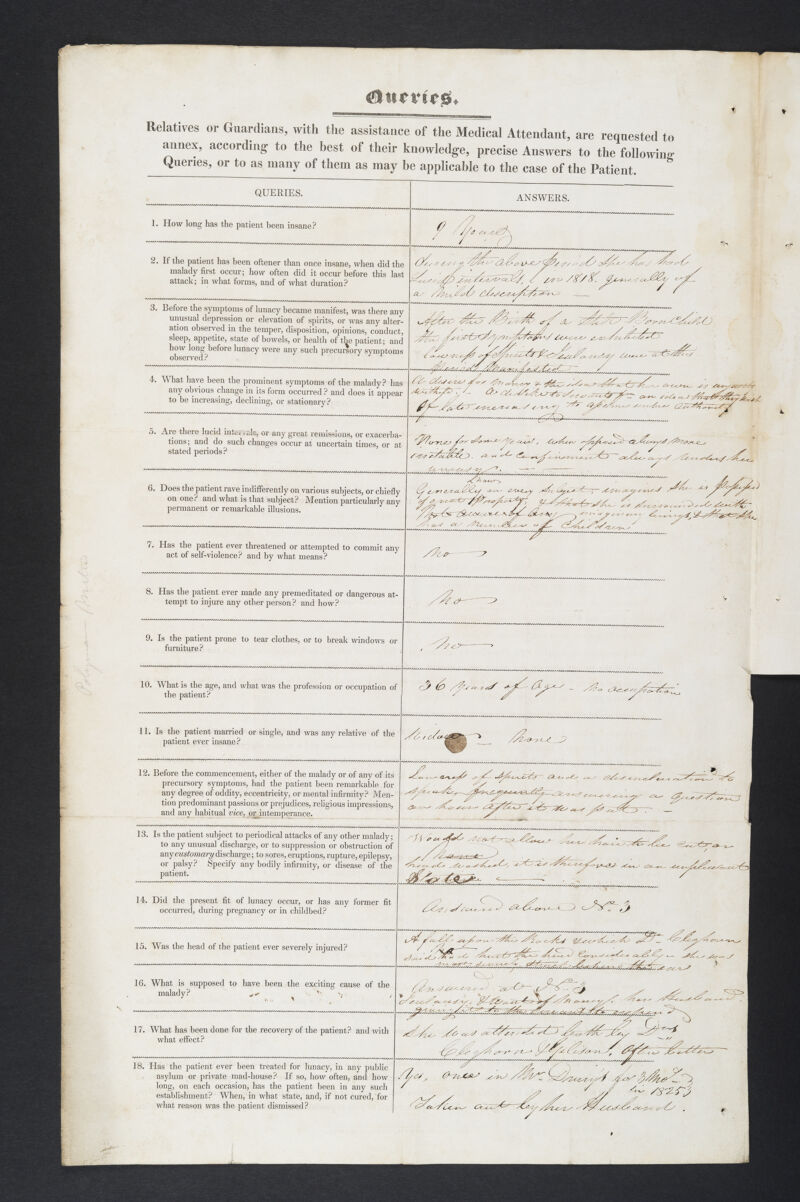 Queries.
Relatives or Guardians, with the assistance of the Medical Attendant, are requested to
annex, according to the best of their knowledge, precise Answers to the following
Queries, or to as many of them as may be applicable to the case of the Patient.
QUERIES.
ANSWERS.
1. How long has the patient been insane?
9 Years
2. If the patient has been oftener than once insane, when did the
malady first occur; how often did it occur before this last
attack; in what forms, and of what duration?
during the above period She has had
Lucid intervals, in 1818. generally of
a mild description
3. Before the symptoms of lunacy became manifest, was there any
unusual depression or elevation of spirits, or was any alter-
ation observed in the temper, disposition, opinions, conduct,
sleep, appetite, state of bowels, or health of the patient; and
how long before lunacy were any such precursory symptoms
observed?
After the Birth of a Still Born Child
the first Symptoms were exhibited
Lowness of Spirits & Jealousy were at this
period Manifested
4. What have been the prominent symptoms of the malady? has
any obvious change in its form occurred? and does it appear
to be increasing, declining, or stationary?
A desire for Money & the idea that her own is
A dislike to Servants an idea that they
Of late increasing
5. Are there lucid intervals, or any great remissions, or exacerba-
tions; and do such changes occur at uncertain times, or at
stated periods?
None for Some Years. when opposed always more
irritable. and Confinement always renders her
uneasy.
6. Does the patient rave indifferently on various subjects, or chiefly
on one? and what is that subject? Mention particularly any
permanent or remarkable illusions.
Generally on every Subject, imagines She is possessed
of Property, & that She is Surrounded with
imaginary beings, & that She
has a number of Children
7. Has the patient ever threatened or attempted to commit any
act of self-violence? and by what means?
No
8. Has the patient ever made any premeditated or dangerous at-
tempt to injure any other person? and how?
No
9. Is the patient prone to tear clothes, or to break windows or
furniture?
No
10. What is the age, and what was the profession or occupation of
the patient?
36 Years of Age - No occupation
11. Is the patient married or single, and was any relative of the
patient ever insane?
Widow - None
12. Before the commencement, either of the malady or of any of its
precursory symptoms, had the patient been remarkable for
any degree of oddity, eccentricity, or mental infirmity? Men-
tion predominant passions or prejudices, religious impressions,
and any habitual vice, or intemperance.
Lowness of Spirits and a disinclination to
Speak, frequently answering a question
an hour after it was put. -
13. Is the patient subject to periodical attacks of any other malady;
to any unusual discharge, or to suppression or obstruction of
any customary discharge; to sores, eruptions, rupture, epilepsy,
or palsy? Specify any bodily infirmity, or disease of the
patient.
Would not allow her hair to be cut, or
hands washed, it is therefore in an unpleasant
State
14. Did the present fit of lunacy occur, or has any former fit
occurred, during pregnancy or in childbed?
Answered above No. 3
15. Was the head of the patient ever severely injured?
A fall upon the Rocks & which Dr. Cleghorn
Said had hurt the head Considerably - She was
ear
16. What is supposed to have been the exciting cause of the
malady?
Answered at No. 3
Jealousy, & want of Money. her Husband
17. What has been done for the recovery of the patient? and with
what effect?
She was attended both by Drs
Cleghorn & often better
18. Has the patient ever been treated for lunacy, in any public
asylum or private mad-house? If so, how often, and how
long, on each occasion, has the patient been in any such
establishment? When, in what state, and, if not cured, for
what reason was the patient dismissed?
Yes, once in Mr. Drury's for 3 Mos.
in 1825
Taken out by her Husband.